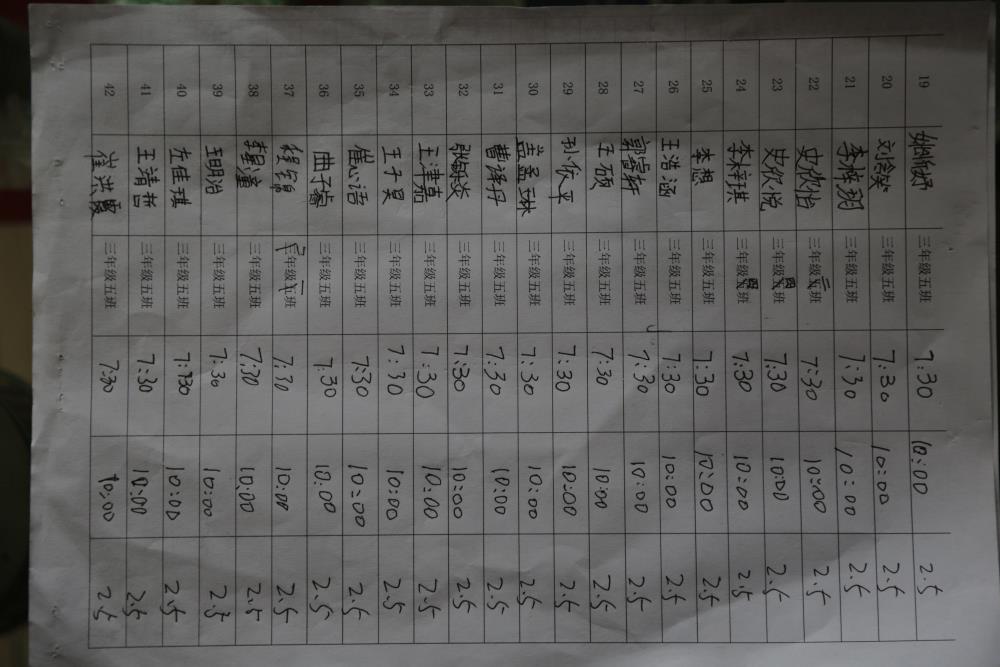 19 三年级五班 7:30 10:00 2.5
20 三年级五班 7:30 10:00 2.5
21 三年级五班 7:30 10:00 2.5
22 史欣怡 三年级二班 7:30 10:00 2.5
23 史欣悦 三年级四班 7:30 10:00 2.5
24 李梓琪 三年级四班 7:30 10:00 2.5
25 李想 三年级五班 7:30 10:00 2.5
26 王浩涵 三年级五班 7:30 10:00 2.5
27 郭睿轩 三年级五班 7:30 10:00 2.5
28 王硕 三年级五班 7:30 10:00 2.5
29 孙依平 三年级五班 7:30 10:00 2.5
30 孟孟琳 三年级五班 7:30 10:00 2.5
31 三年级五班 7:30 10:00 2.5
32 三年级五班 7:30 10:00 2.5
33 王津嘉 三年级五班 7:30 10:00 2.5
34 王子昊 三年级五班 7:30 10:00 2.5
35 崔心语 三年级五班 7:30 10:00 2.5
36 曲子睿 三年级五班 7:30 10:00 2.5
37 年级二班 7:30 10:00 2.5
38 三年级五班 7:30 10:00 2.5
39 三年级五班 7:30 10:00 2.5
40 左佳琪 三年级五班 7:30 10:00 2.5
41 王靖哲 三年级五班 7:30 10:00 2.5
42 崔洪霞 三年级五班 7:30 10:00 2.5